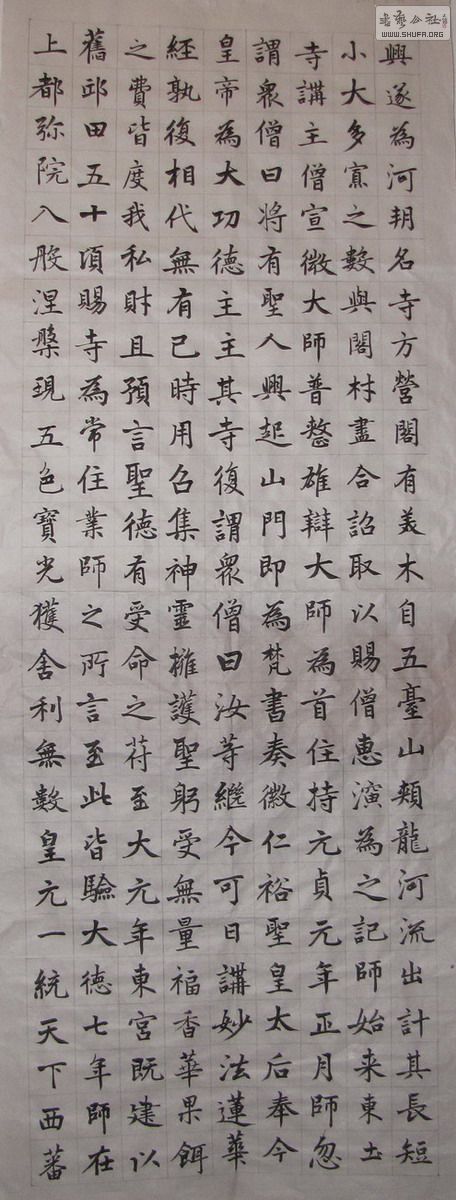 興遂為河朔名寺方營閣有美木自五臺山頰龍河流出計其長短
小大多寡之數與閣材盡合詔取以賜僧惠演為之記師始来東土
寺講主僧宣微大師普整雄辯大師為首住持元貞元年正月師忽
謂衆僧曰将有聖人興起山門即為梵書奏徽仁裕聖皇太后奉今
皇帝為大功德主主其寺復謂衆僧曰汝等繼今可日講妙法蓮華
經孰復相代無有已時用召集神靈擁護聖躬受無量福香華果餌
之費皆度我私財且預言聖德有受命之苻至大元年東宮既建以
舊邸田五十頃賜寺為常住業師之所言至此皆驗大德七年師在
上都弥院入般涅槃現五色寶光獲舍利無數皇元一統天下西蕃
書藝公社
WWW.SHUFA.ORG